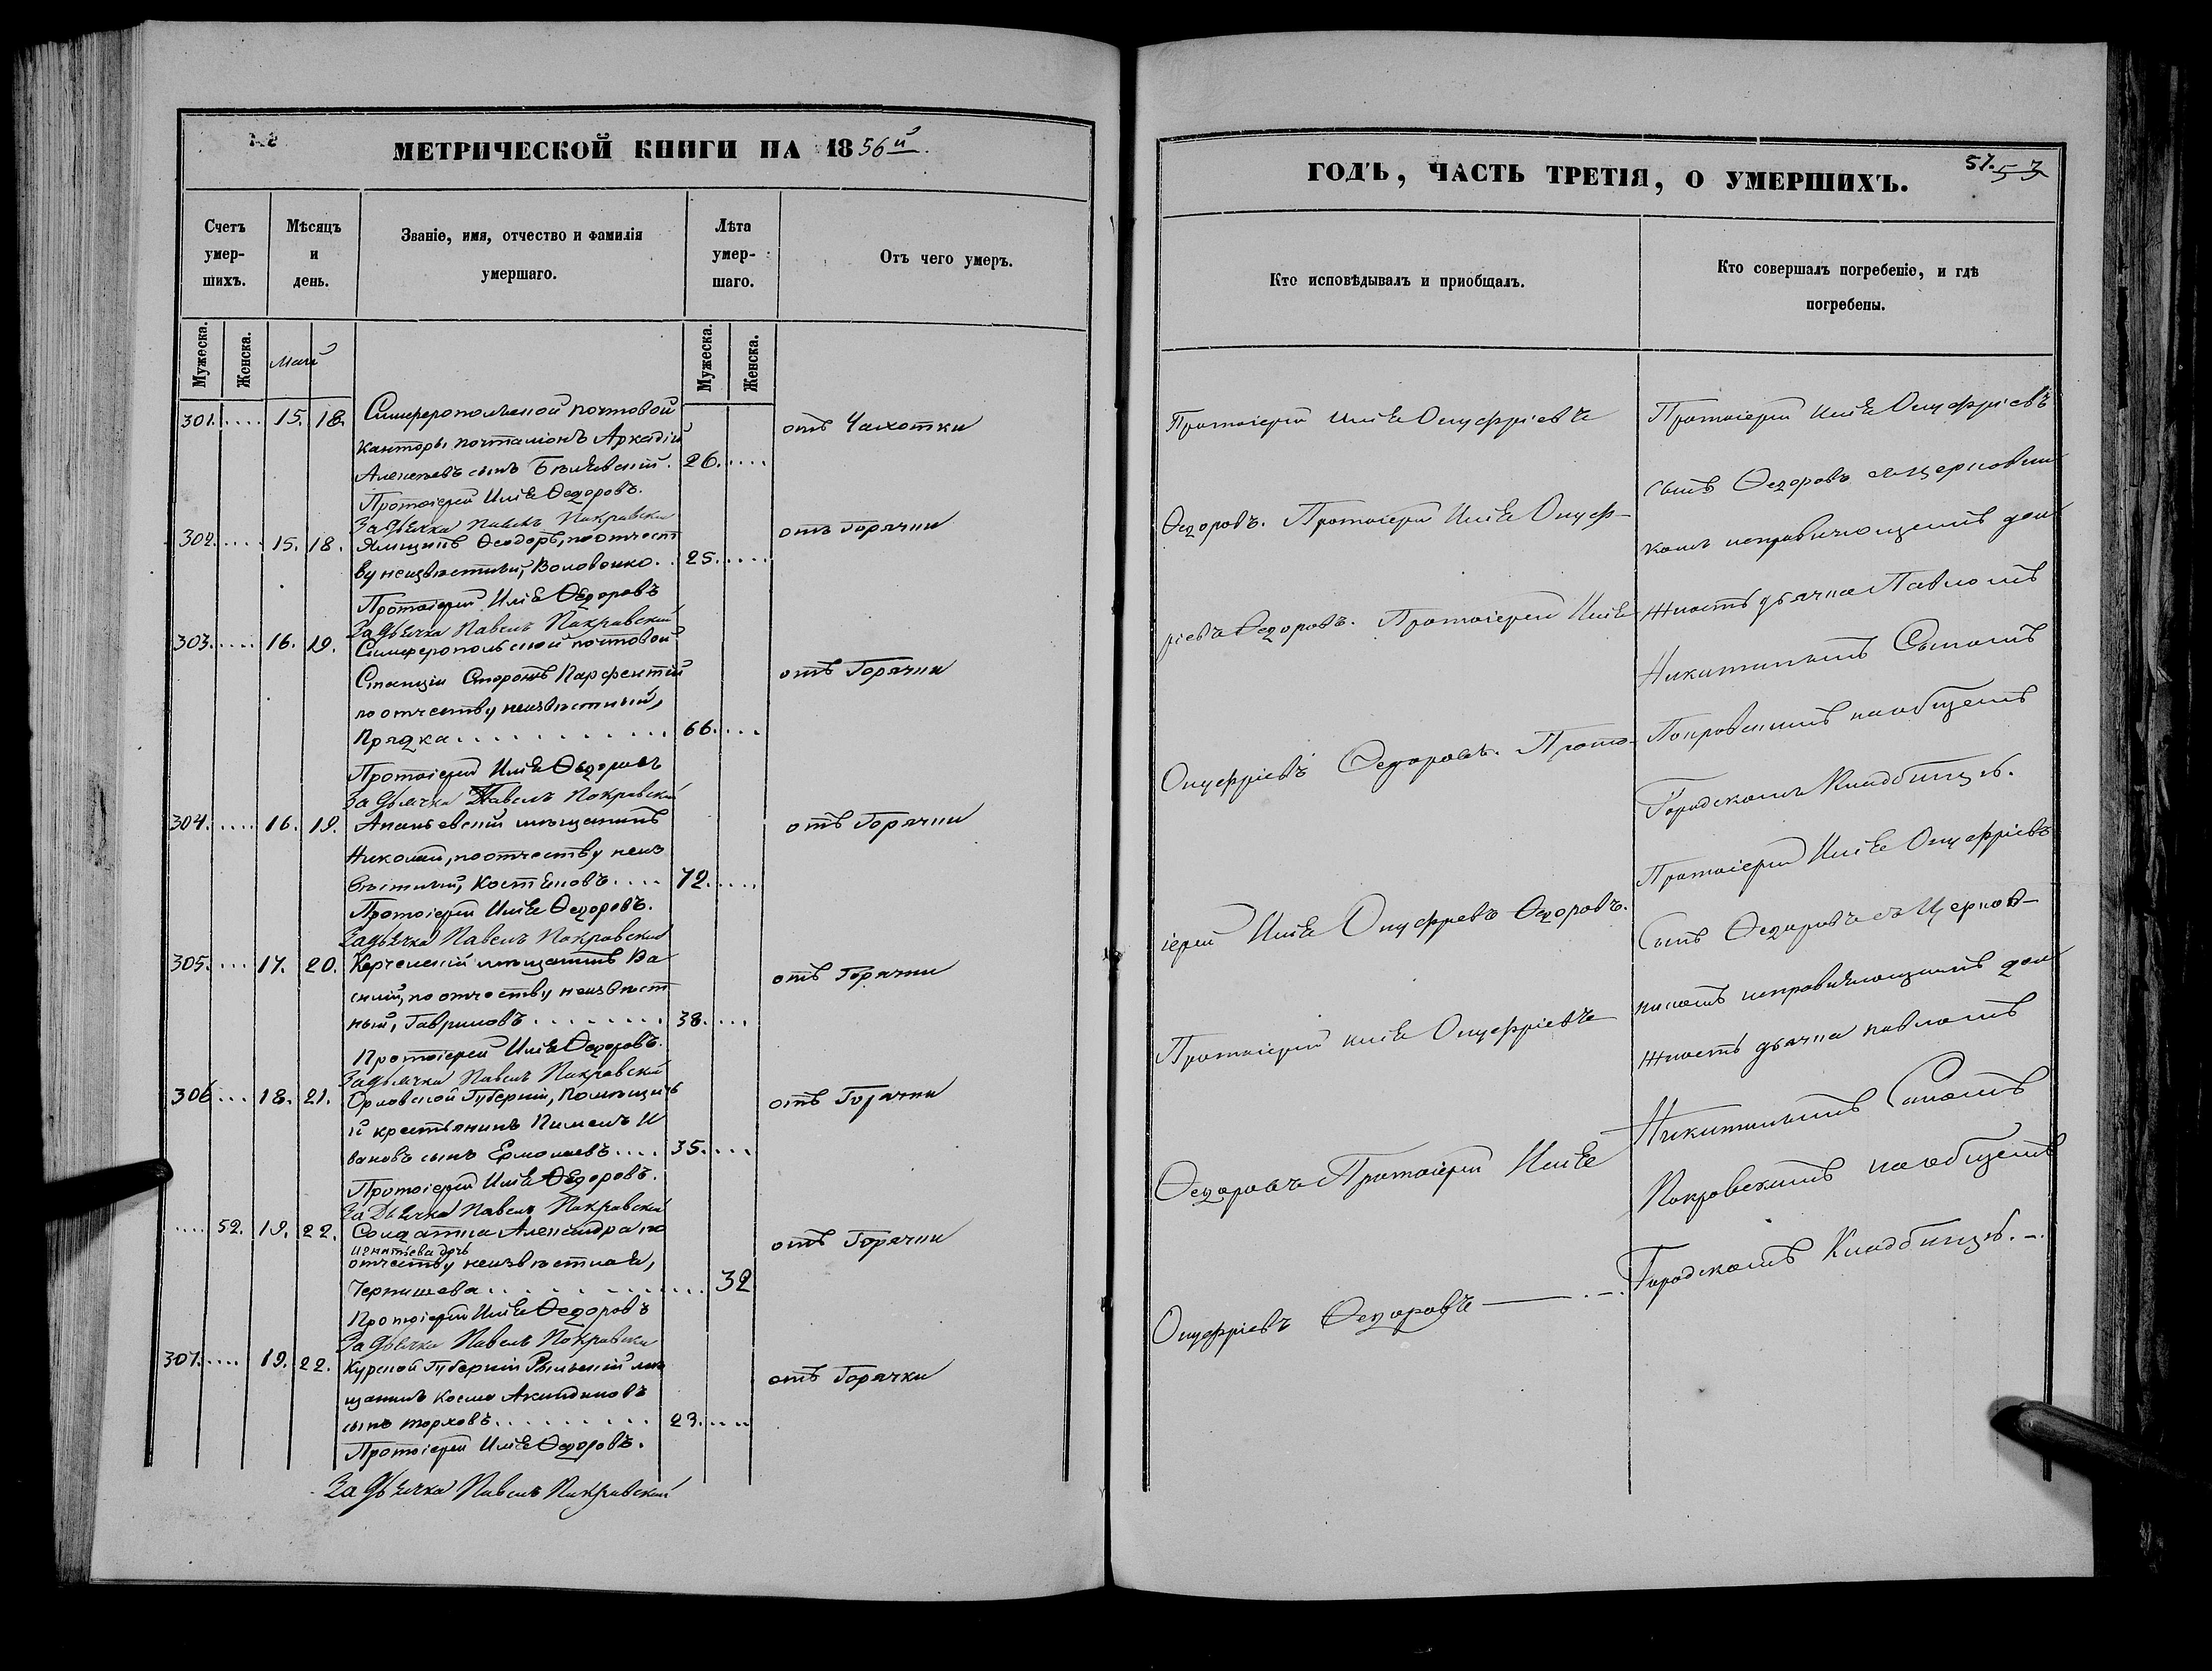 МЕТРИЧЕСКОЙ КНИГИ НА 1856й.
Счетъ умер-шихъ.
Мѣсяцъ и день.
Званіе, имя, отчество и фамилія умершаго.
Лѣта умер-шаго.
Отъ чего умеръ.
Мужеска. Женска.
Май
Мужеска. Женска.
301. .... 15. 18. Симферопольской почтовой отъ Чахотки
канторы почталіонъ Аркадій
Алексѣевъ сынъ 26. ....
Протоіерей Илія Ѳедоровъ.
За Дьячка Павелъ Покравски
302. .... 15. 18. Ямщикъ Ѳеодоръ, по отчест отъ Горячки
ву неизвѣстный, Воловенко. . 25. ....
Протоіерей Илія Ѳедоровъ
За Дьячка Павелъ Покравский
303. .... 16. 19. Симферопольской почтовой
Станціи Сторожъ Парфентій отъ Горячки
по отчеству неизвѣстный,
Прядка . . . . . . . . . . . . 66. ....
Протоіерей Илія Ѳедоровъ
За Дьячка Павелъ Покравский
304. .... 16. 19. Ананьевскій мѣщанинъ отъ Горячки
Николай, по отчеству неиз
вѣстный, Костековъ .... 72. ....
Протоіерей Илія Ѳедоровъ.
За Дьячка Павелъ Покравский
305. .... 17. 20. Керченскій мѣщанинъ Ва отъ Горячки
силій, по отчеству неизвѣст
ный, Гавриловъ . . . . . . . . 38. ...
Протоіерей Илія Ѳедоровъ.
За Дьячка Павелъ Покравский
306 ... 18. 21. Орловской Губерніи, помѣщичь отъ Горячки
й крестьянинъ Пименъ И
вановъ сынъ Ермолаевъ .... 35. ...
Протоіерей Илія Ѳедоровъ.
За Дьячка Павелъ Покравский
.... 52. 19. 22. Солдатка Александра по отъ Горячки
Игнатьева дочь
отчеству неизвѣстная,
Чернишева . . . . . . . . . . 32
Протоіерей Илія Ѳедоровъ
За Дьячка Павелъ Покравски
307. .... 19. 22. Курской Губерніи Рыльскій мѣ отъ Горячки
щанинъ Косма Акиндиновъ
сынъ Торховъ . . . . . . . . . 23. ....
Протоіерей Илія Ѳедоровъ.
За Дьячка Павелъ Покравский
ГОДЪ, ЧАСТЬ ТРЕТІЯ, О УМЕРШИХЪ.
51. 53
Кто исповѣдывалъ и пріобщалъ.
Кто совершалъ погребеніе, и гдѣ погребены.
Протоіерей Илія Онуфріевъ
Ѳедоровъ. Протоіерей Илія Онуф-
ріевъ Ѳедоровъ. Протоіерей Илія
Онуфріевъ Ѳедоровъ. Прото-
іерей Илія Онуфревъ Ѳедоровъ.
Протоіерей Илія Онуфріевъ
Ѳедоровъ Протоіерей Илія
Онуфріевъ Ѳедоровъ
Протоіерей Илія Онуфріевъ
сынъ Ѳедоровъ съ церковни
комъ исправляющимъ дол
жность дьячка Павломъ
Никитинымъ Сыномъ
Покровскимъ на общемъ
Городскомъ Кладбищѣ.
Протоіерей Илія Онуфріевъ
Сынъ Ѳедоровъ съ Церков-
никомъ исправляющимъ дол
жность дьячка Павломъ
Никитинымъ Сыномъ
Покровскимъ на общемъ
Городскомъ Кладбищѣ.